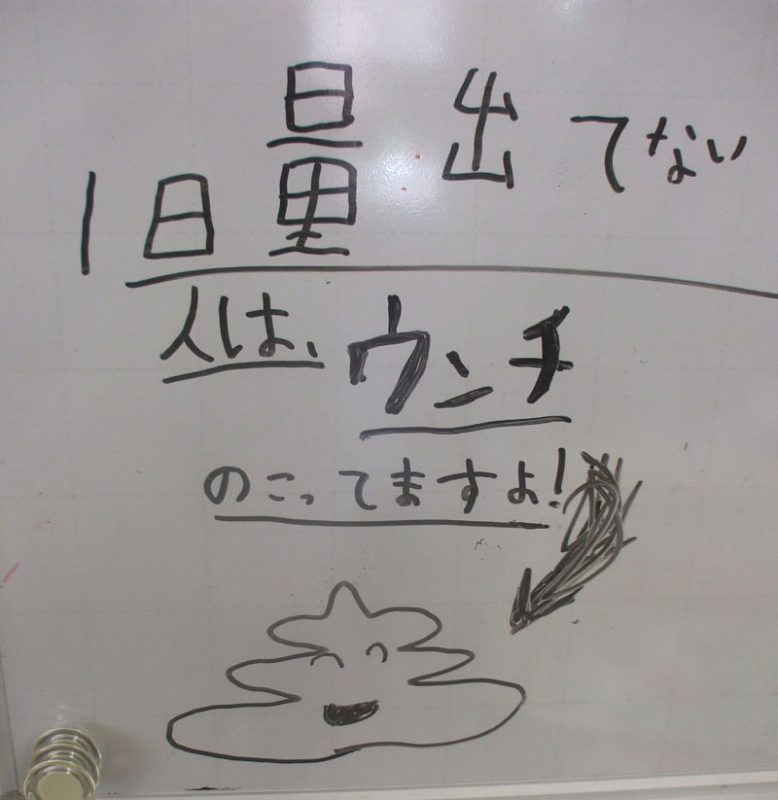 1日量出てない
人は、ウンチ
のこってますよ!